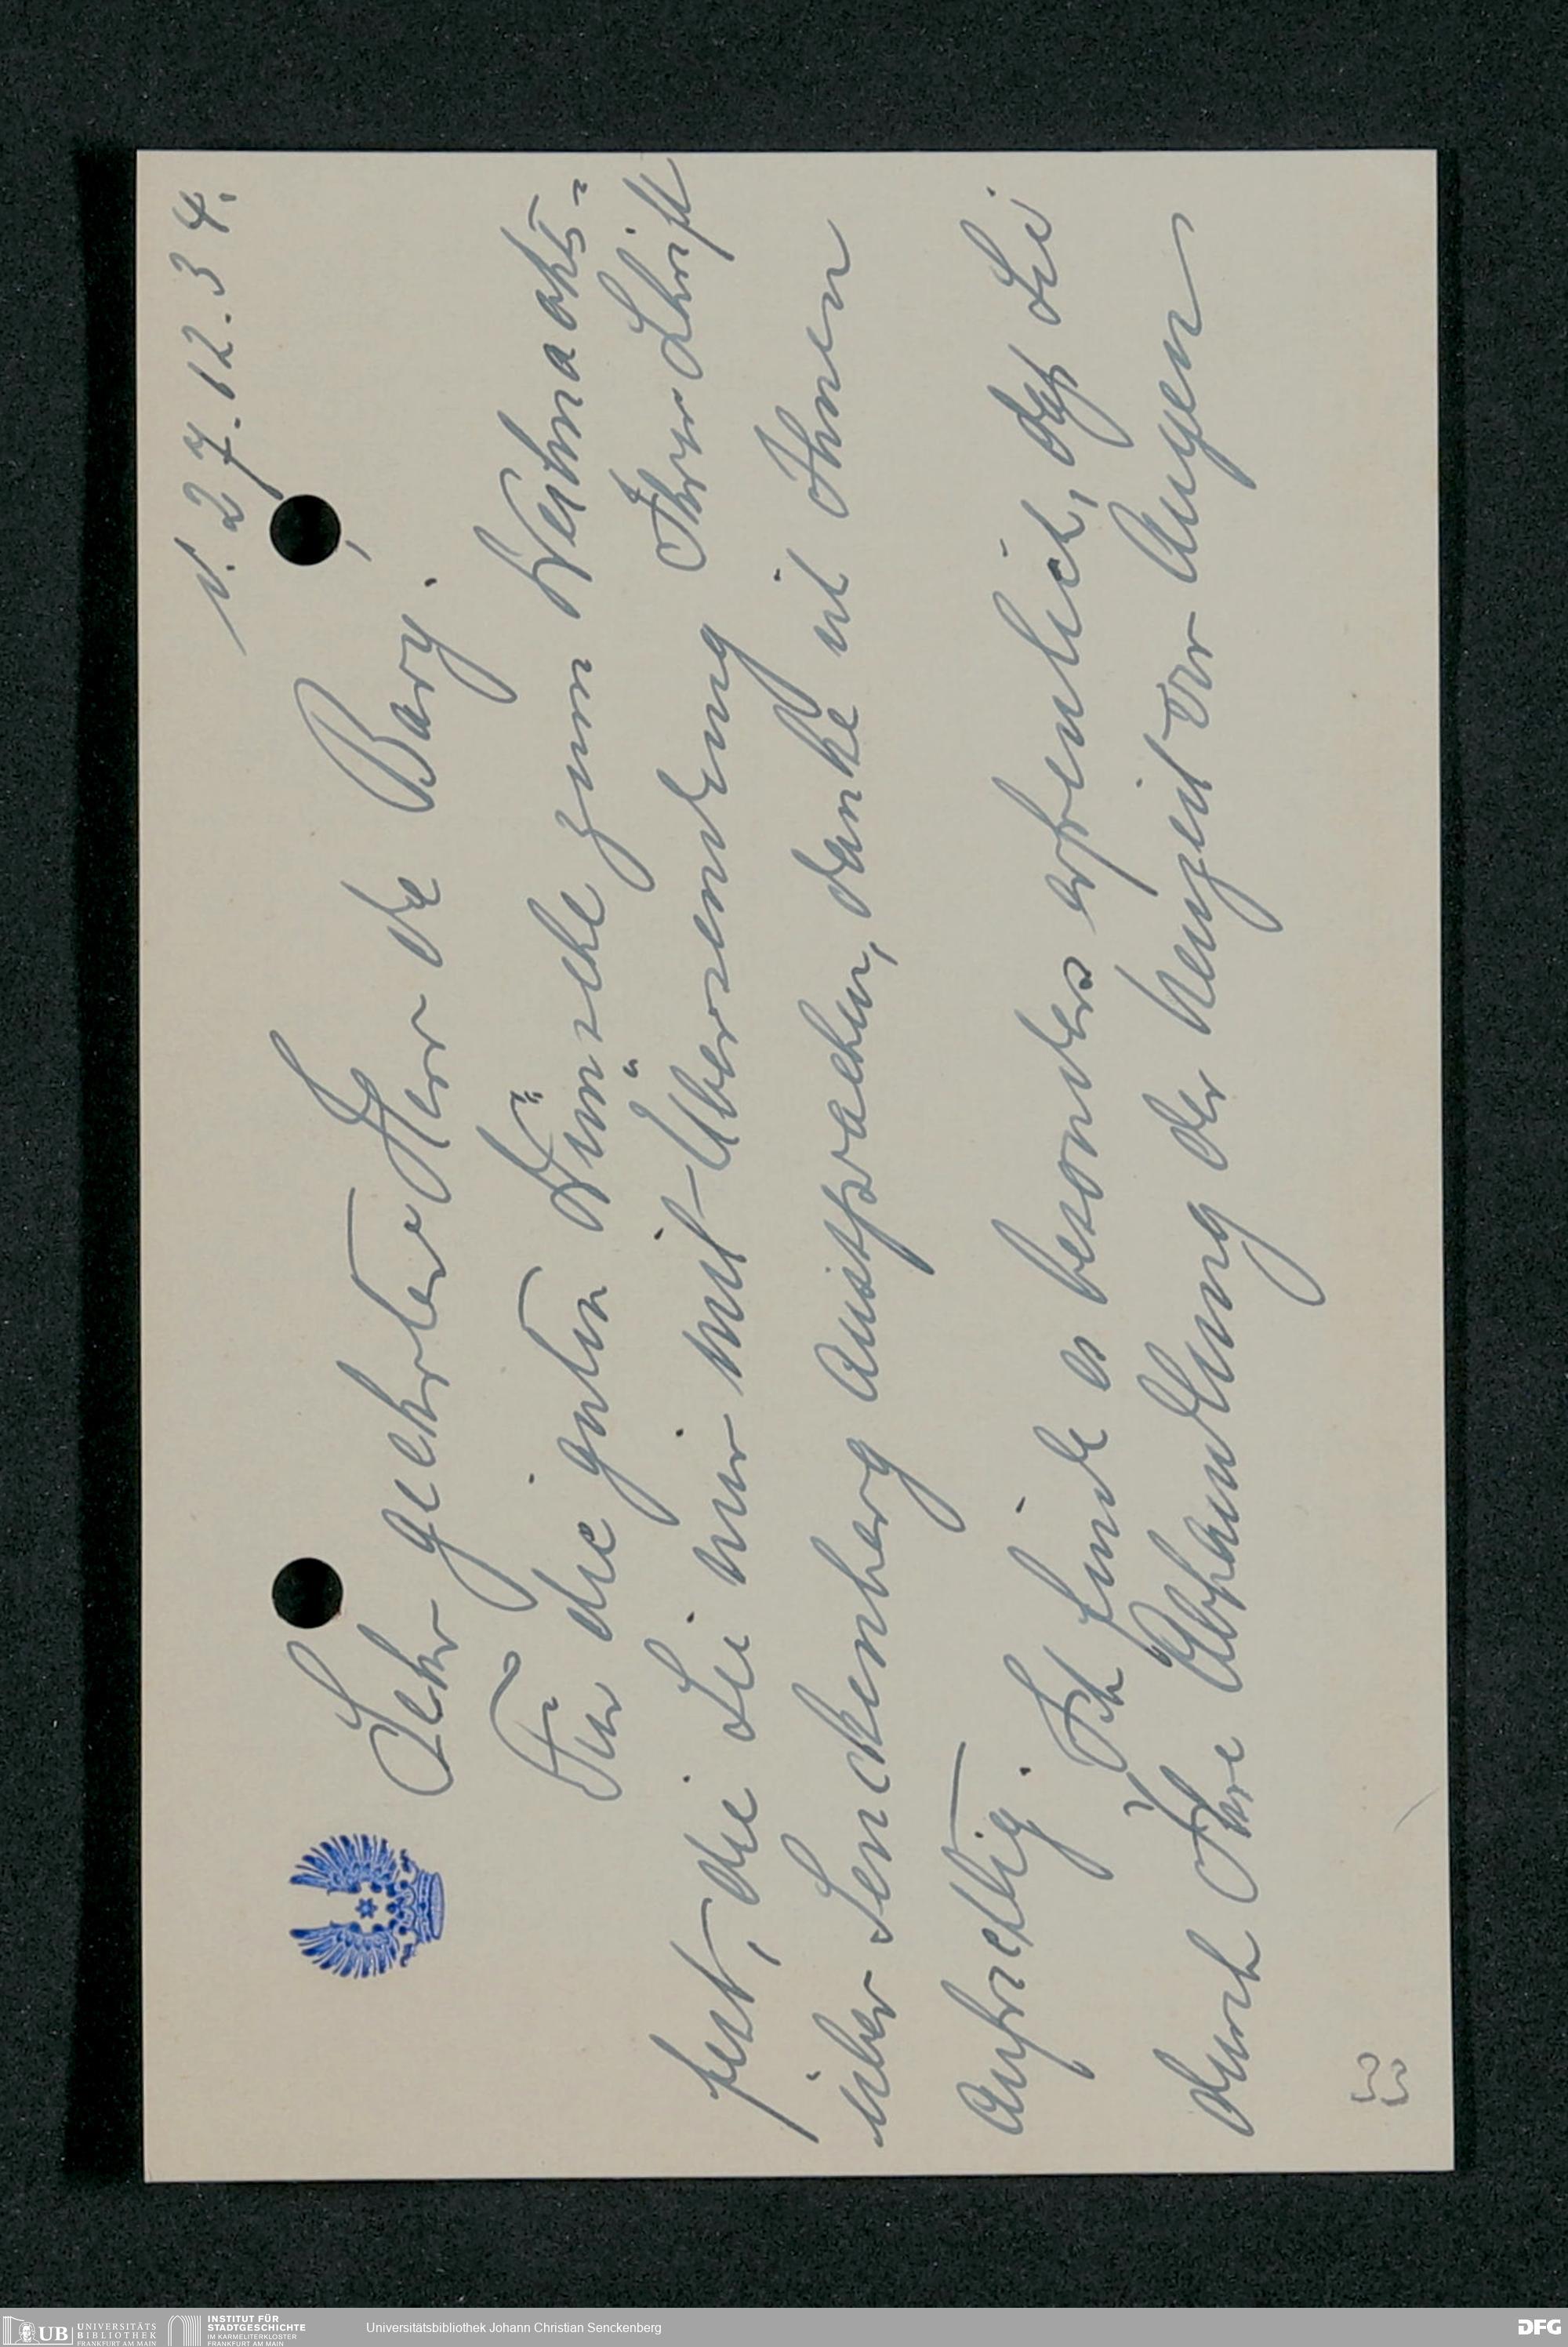 N. 27.12.34.
Sehr geehrter Herr de Bary,
Für die guten Wünsche zum Weihnachts-
fest, die Sie mir mit Übersendung Ihrer Schrift
über Senckenberg aussprachen, danke ich Ihnen
aufrichtig. Ich finde es besonders erfreulich, daß Sie
durch Ihre Abhandlung der Neuzeit vor Augen
33
UB UNIVERSITÄTS
BIBLIOTHEK
FRANKFURT AM MAIN
INSTITUT FÜR
STADTGESCHICHTE
IM KARMELITERKLOSTER
FRANKFURT AM MAIN
Universitätsbibliothek Johann Christian Senckenberg
DFG